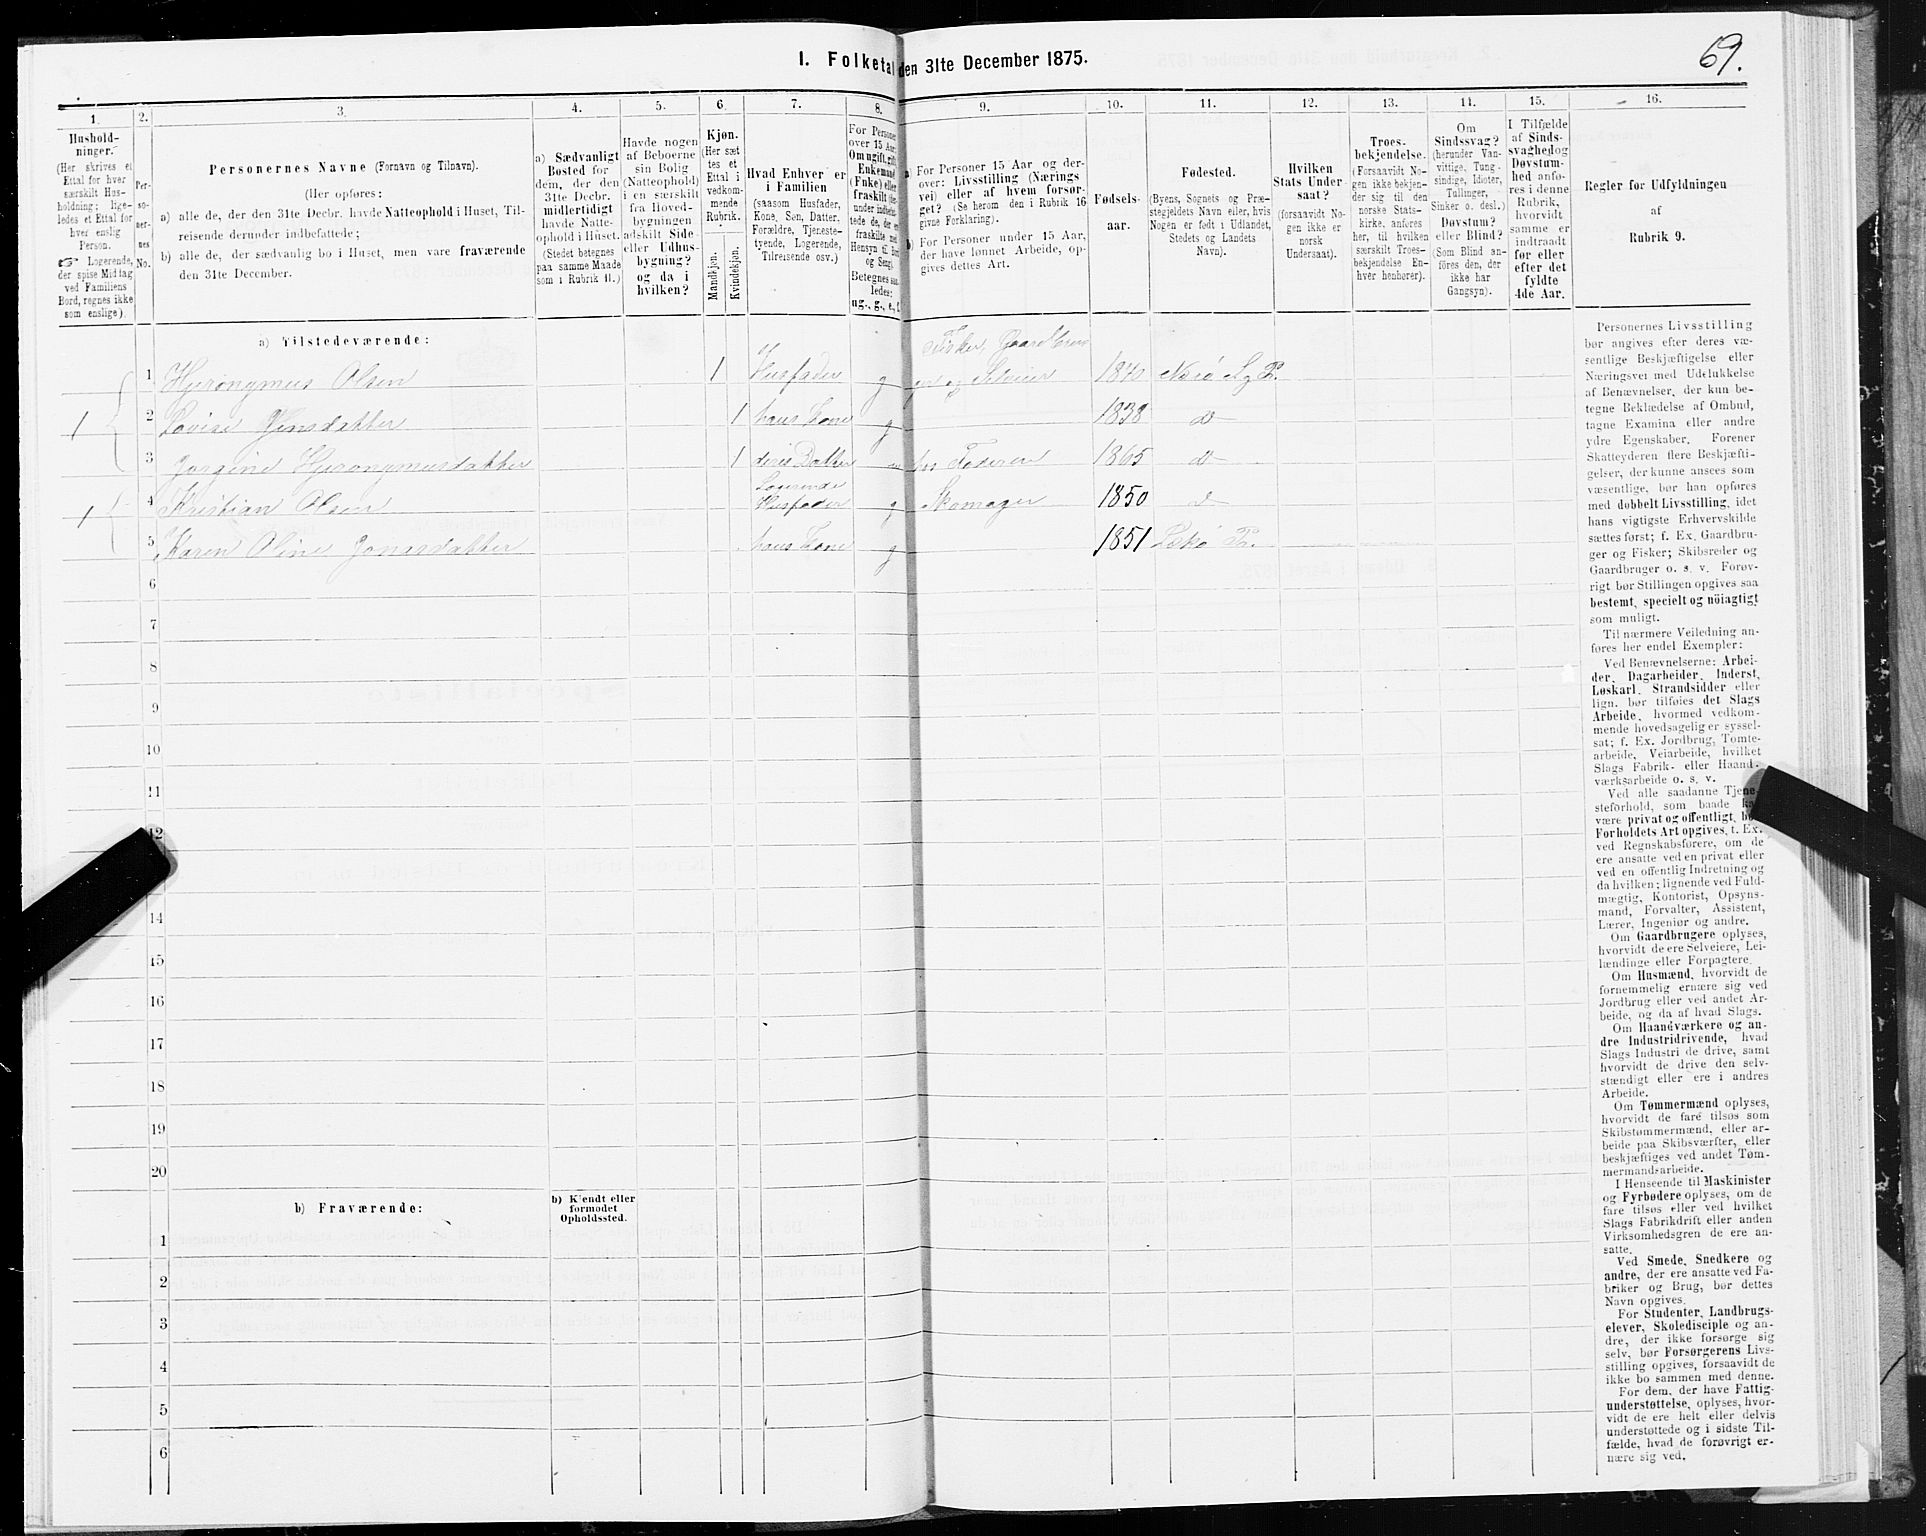 69.
1. Folketal den 31te December 1875.
1. 2. 3. 4. 5. 6. 7. 8. 9. 10. 11. 12. 13. 14. 15. 16.
Hushold-
ninger.
(Her skrives et
Ettal for hver
særskilt Hus-
holdning; lige-
ledes et Ettal for
hver enslig
Person.
☞ Logerende,
der spise Middag
ved Familiens
Bord, regnes ikke
som enslige).
Per-
so-
ner-
nes
No.
Personernes Navne (Fornavn og Tilnavn).
(Her opføres:
a) alle de, der den 31te Decbr. havde Natteophold i Huset, Til-
reisende derunder indbefattede;
b) alle de, der sædvanlig bo i Huset, men vare fraværende
den 31te December.
a) Sædvanligt
Bosted for
dem, der den
31te Decbr.
midlertidigt
havde Natte-
ophold i Huset.
(Stedet betegnes
paa samme Maade
som i Rubrik 11.)
Havde nogen
af Beboerne
sin Bolig
(Natteophold)
i en særskilt
fra Hoved-
bygningen
adskilt Side-
eller Udhus-
bygning?
og da i
hvilken?
Kjøn.
(Her sæt
tes et
Ettal i
vedkom-
mende
Rubrik.
Mandkjøn.
Kvindekjøn.
Hvad Enhver er
i Familien
(saasom Husfader,
Kone, Søn, Datter,
Forældre, Tjeneste-
tyende, Logerende,
Tilreisende osv.)
For Personer
over 15 Aar:
Om ugift, gift,
Enkemand
(Enke) eller
fraskilt
Betegnes saa-
ledes:
ug., g., e., f.
a) For Personer 15 Aar og der-
over: Livsstilling (Nærings
vei) eller af hvem forsør-
get? (Se herom den i Rubrik 16
givne Forklaring).
b) For Personer under 15 Aar,
der have lønnet Arbeide, op-
gives dettes Art.
Fødsels-
aar.
Fødested.
(Byens, Sognets og Præ-
stegjeldets Navn eller, hvis
Nogen er født i Udlandet,
Stedets og Landets
Navn).
Hvilken
Stats Under-
saat?
(forsaavidt No-
gen ikke er
norsk
Undersaat).
Troes-
bekjendelse.
(Forsaavidt No-
gen ikke bekjen-
der sig til den
norske Stats-
kirke, anføres
her, til hvilken
særskilt Troes-
bekjendelse En-
hver henhører).
Om
Sindssvag?
(herunder Van-
vittige, Tung-
sindige, Idioter,
Tullinger,
Sinker o. desl.)
Døvstum?
eller Blind?
(Som Blind an-
føres den, der
ikke har
Gangsyn).
I Tilfælde
af Sinds-
svaghed og
Døvstum-
hed anfø-
res i denne
Rubrik,
hvorvidt
samme er
indtraadt
før eller
efter det
fyldte
4de Aar.
Regler for Udfyldningen
af
Rubrik 9.
a) Tilstedeværende:
1 1 Hyronymus Olsen 1 Husfader g Fisker, Gaardbru-
ger og Selveier 1840 Nærø S. g P.
2 Lovise Jensdatter 1 hans Kone g 1838 do
3 Jorgine Hyronymusdatter 1 deres Datter hos Faderen 1865 do
1 4 Kristian Olsen Logerende
Husfader g Skomager 1850 do
5 Karen Oline Jonasdatter hans Kone g 1851 Lekø Pr.
6
7
8
9
10
11
12
14
15
16
17
18
19
20
b) Fraværende:
b) Kjendt eller
formodet
Opholdssted.
1
2
3
4
5
6
Personernes Livsstilling
bør angives efter deres væ-
sentlige Beskjæftigelse eller
Næringsvei med Udelukkelse
af Benævnelser, der kun be-
tegne Beklædelse af Ombud,
tagne Examina eller andre
ydre Egenskaber. Forener
Skatteyderen flere Beskjæfti-
gelser, der kunne ansees som
væsentlige, bør han opføres
med dobbelt Livsstilling, idet
hans vigtigste Erhvervskilde
sættes først; f. Ex. Gaardbru-
ger og Fisker; Skibsreder og
Gaardbruger o. s. v. Forøv-
rigt bør Stillingen opgives saa
bestemt, specielt og nöiagtigt
som muligt.
Til nærmere Veiledning an-
føres her endel Exempler:
Ved Benævnelserne: Arbei-
der, Dagarbeider, Inderst,
Løskarl, Strandsidder eller
lign. bør tilføies det Slags
Arbeide, hvormed vedkom-
mende hovedsagelig er syssel-
sat; f. Ex. Jordbrug, Tomte-
arbeide, Veiarbeide, hvilket
Slags Fabrik- eller Haand-
værksarbeide o. s. v.
Ved alle saadanne Tjene-
steforhold, som baade
være privat og offentligt,
Forholdets Art opgives, t. Ex.
ved Regnskabsførere, om de
ere ansatte ved en privat eller
ved en offentlig Indretning og
da hvilken; lignende ved Fuld-
mægtig, Kontorist, Opsyns-
mand, Forvalter, Assistent,
Lærer, Ingeniør og andre.
Om Gaardbrugere oplyses,
hvorvidt de ere Selveiere, Lei-
lændinge eller Forpagtere.
Om Husmænd, hvorvidt de
fornemmelig ernære sig ved
Jordbrug eller ved andet Ar-
beide, og da af hvad Slags.
Om Haandværkere og an-
dre Industridrivende, hvad
Slags Industri de drive, samt
hvorvidt de drive den selv-
stændigt eller ere i andres
Arbeide.
Om Tømmermænd oplyses,
hvorvidt de fare tilsøs som
Skibstømmermænd, eller ar-
beide paa Skibsværfter, eller
beskjæftiges ved andet Tøm-
mermandsarbeide.
I Henseende til Maskinister
og Fyrbødere oplyses, om de
fare tilsøs eller ved hvilket
Slags Fabrikdrift eller anden
Virksomhedsgren de ere an-
satte.
Ved Smede, Snedkere og
andre, der ere ansatte ved Fa-
briker og Brug, bør dettes
Navn opgives.
For Studenter, Landbrugs-
elever, Skoledisciple og an-
dre, der ikke forsørge sig
selv, bør Forsørgerens Livs-
stilling opgives, forsaavidt de
ikke bo sammen med denne.
For dem, der have Fattig-
understøttelse, oplyses, hvor-
vidt de ere helt eller delvis
understøttede og i sidste Til-
fælde, hvad de forøvrigt er-
nære sig ved.